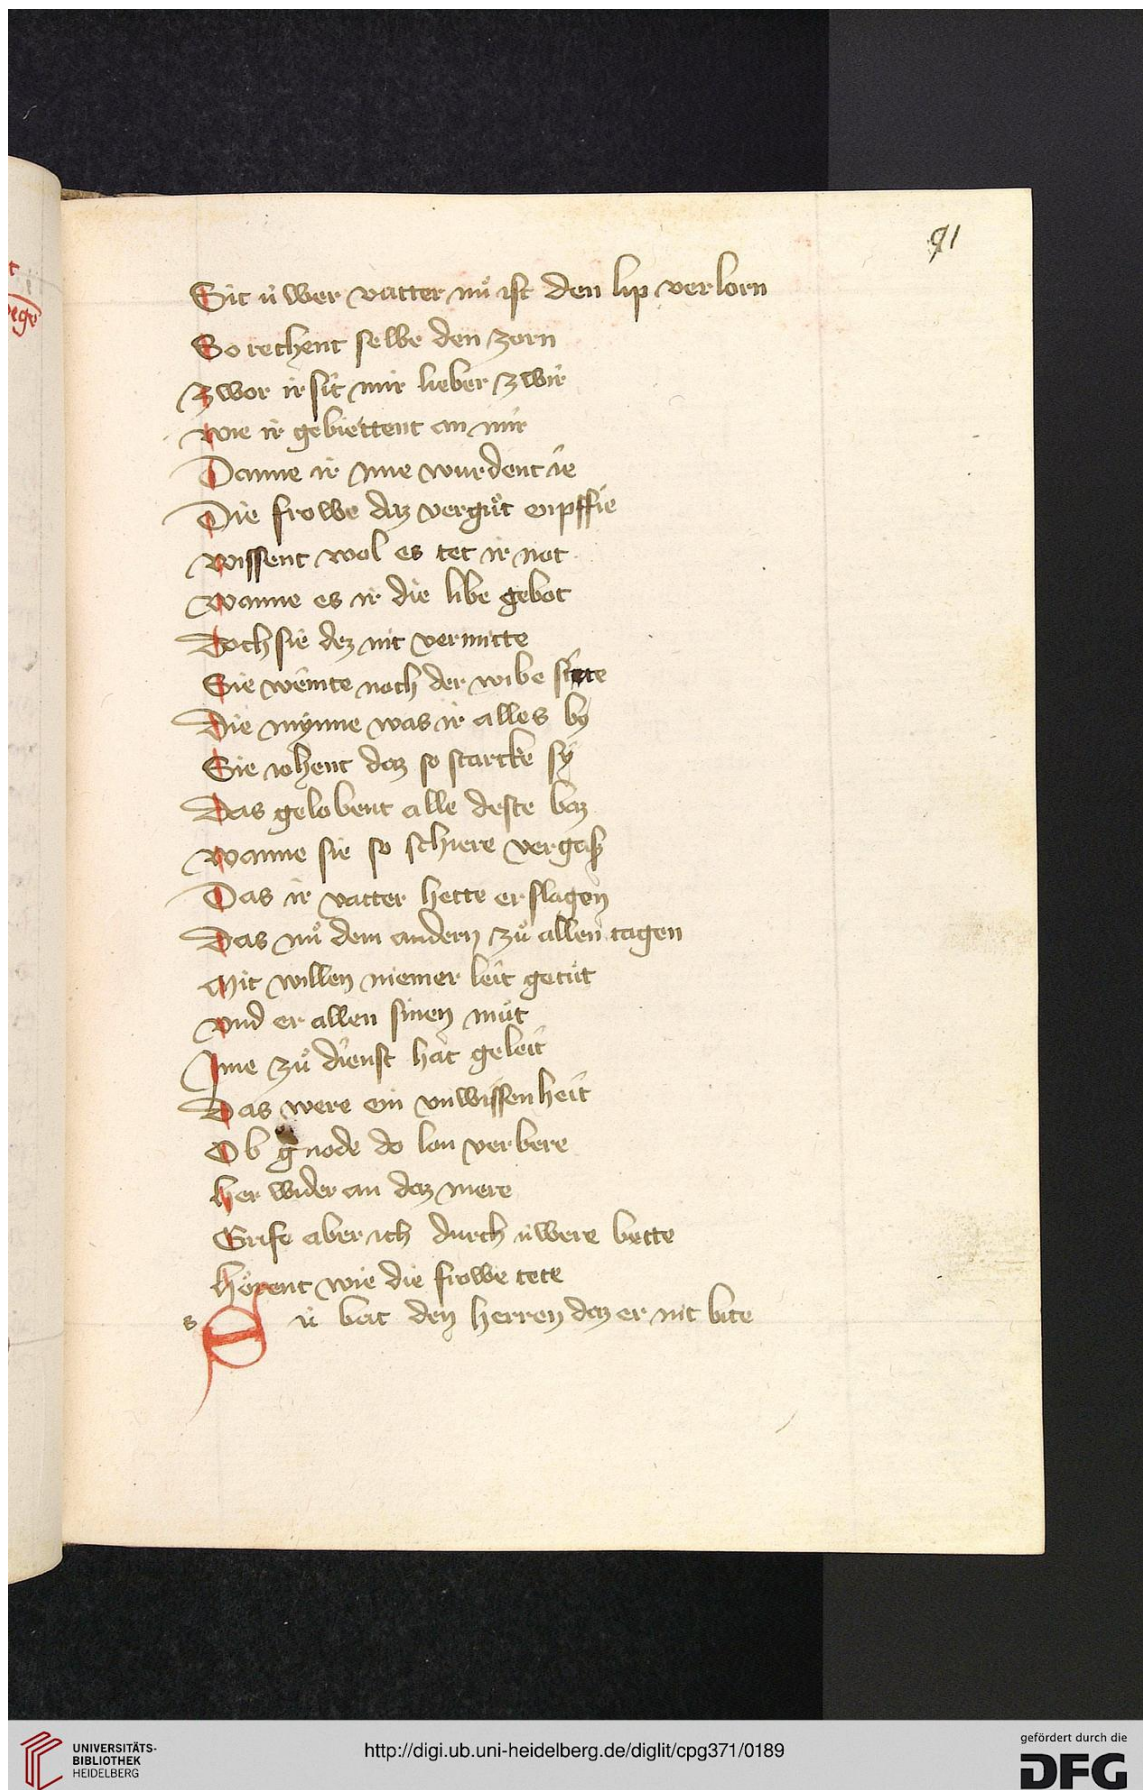 91
Sit u̍wer vatter nuͦ ist den lip verlorn
So rechent selbe den zorn
Zwor ir sit mir lieber zwir
Wie ir gebiettent an mir
Danne ir Ime wurdent ie
Die frowe daz verguͦt enpffie
Wissent wol es tet ir not
Wanne es ir die libe gebot
Doch sie dez nit vermitte
Sie weinte noch der wibe sitte
Die mynne was ir alles by
Sie iohent daz so starcke sy
Das gelobent alle deste baz
Wanne sie so schiere vergaß
Das ir vatter hette erslagen
Das nuͦ dem andern zuͦ allen tagen
Mit willen niemer leit getuͦt
Vnd er allen sinen muͦt
Ime zuͦ dienst hat geleit
Das were ein vnwissenheit
Ob gnode do lon verbere
Her wider an daz mere
Grife aber ich durch u̍were bette
Hoͤrent wie die frowe tete
s
Su̍ bat den herren daz er nit bite
UNIVERSITÄTS-
BIBLIOTHEK
HEIDELBERG
http://digi.ub.uni-heidelberg.de/diglit/cpg371/0189
gefördert durch die
DFG